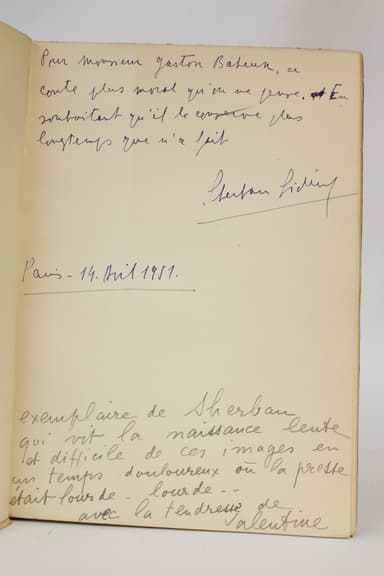 Pour Monsieur Gaston Bateux, ce
conte plus moral qu'on ne pense. En
souhaitant qu'il le conserve plus
longtemps que n'a fait
Sherban Sidéry
Paris - 14. Avril 1951.
exemplaire de Sherban
qui vit la naissance lente
et difficile de ces images en
un temps douloureux où la presse
était lourde - lourde - -
avec la tendresse de
Valentine